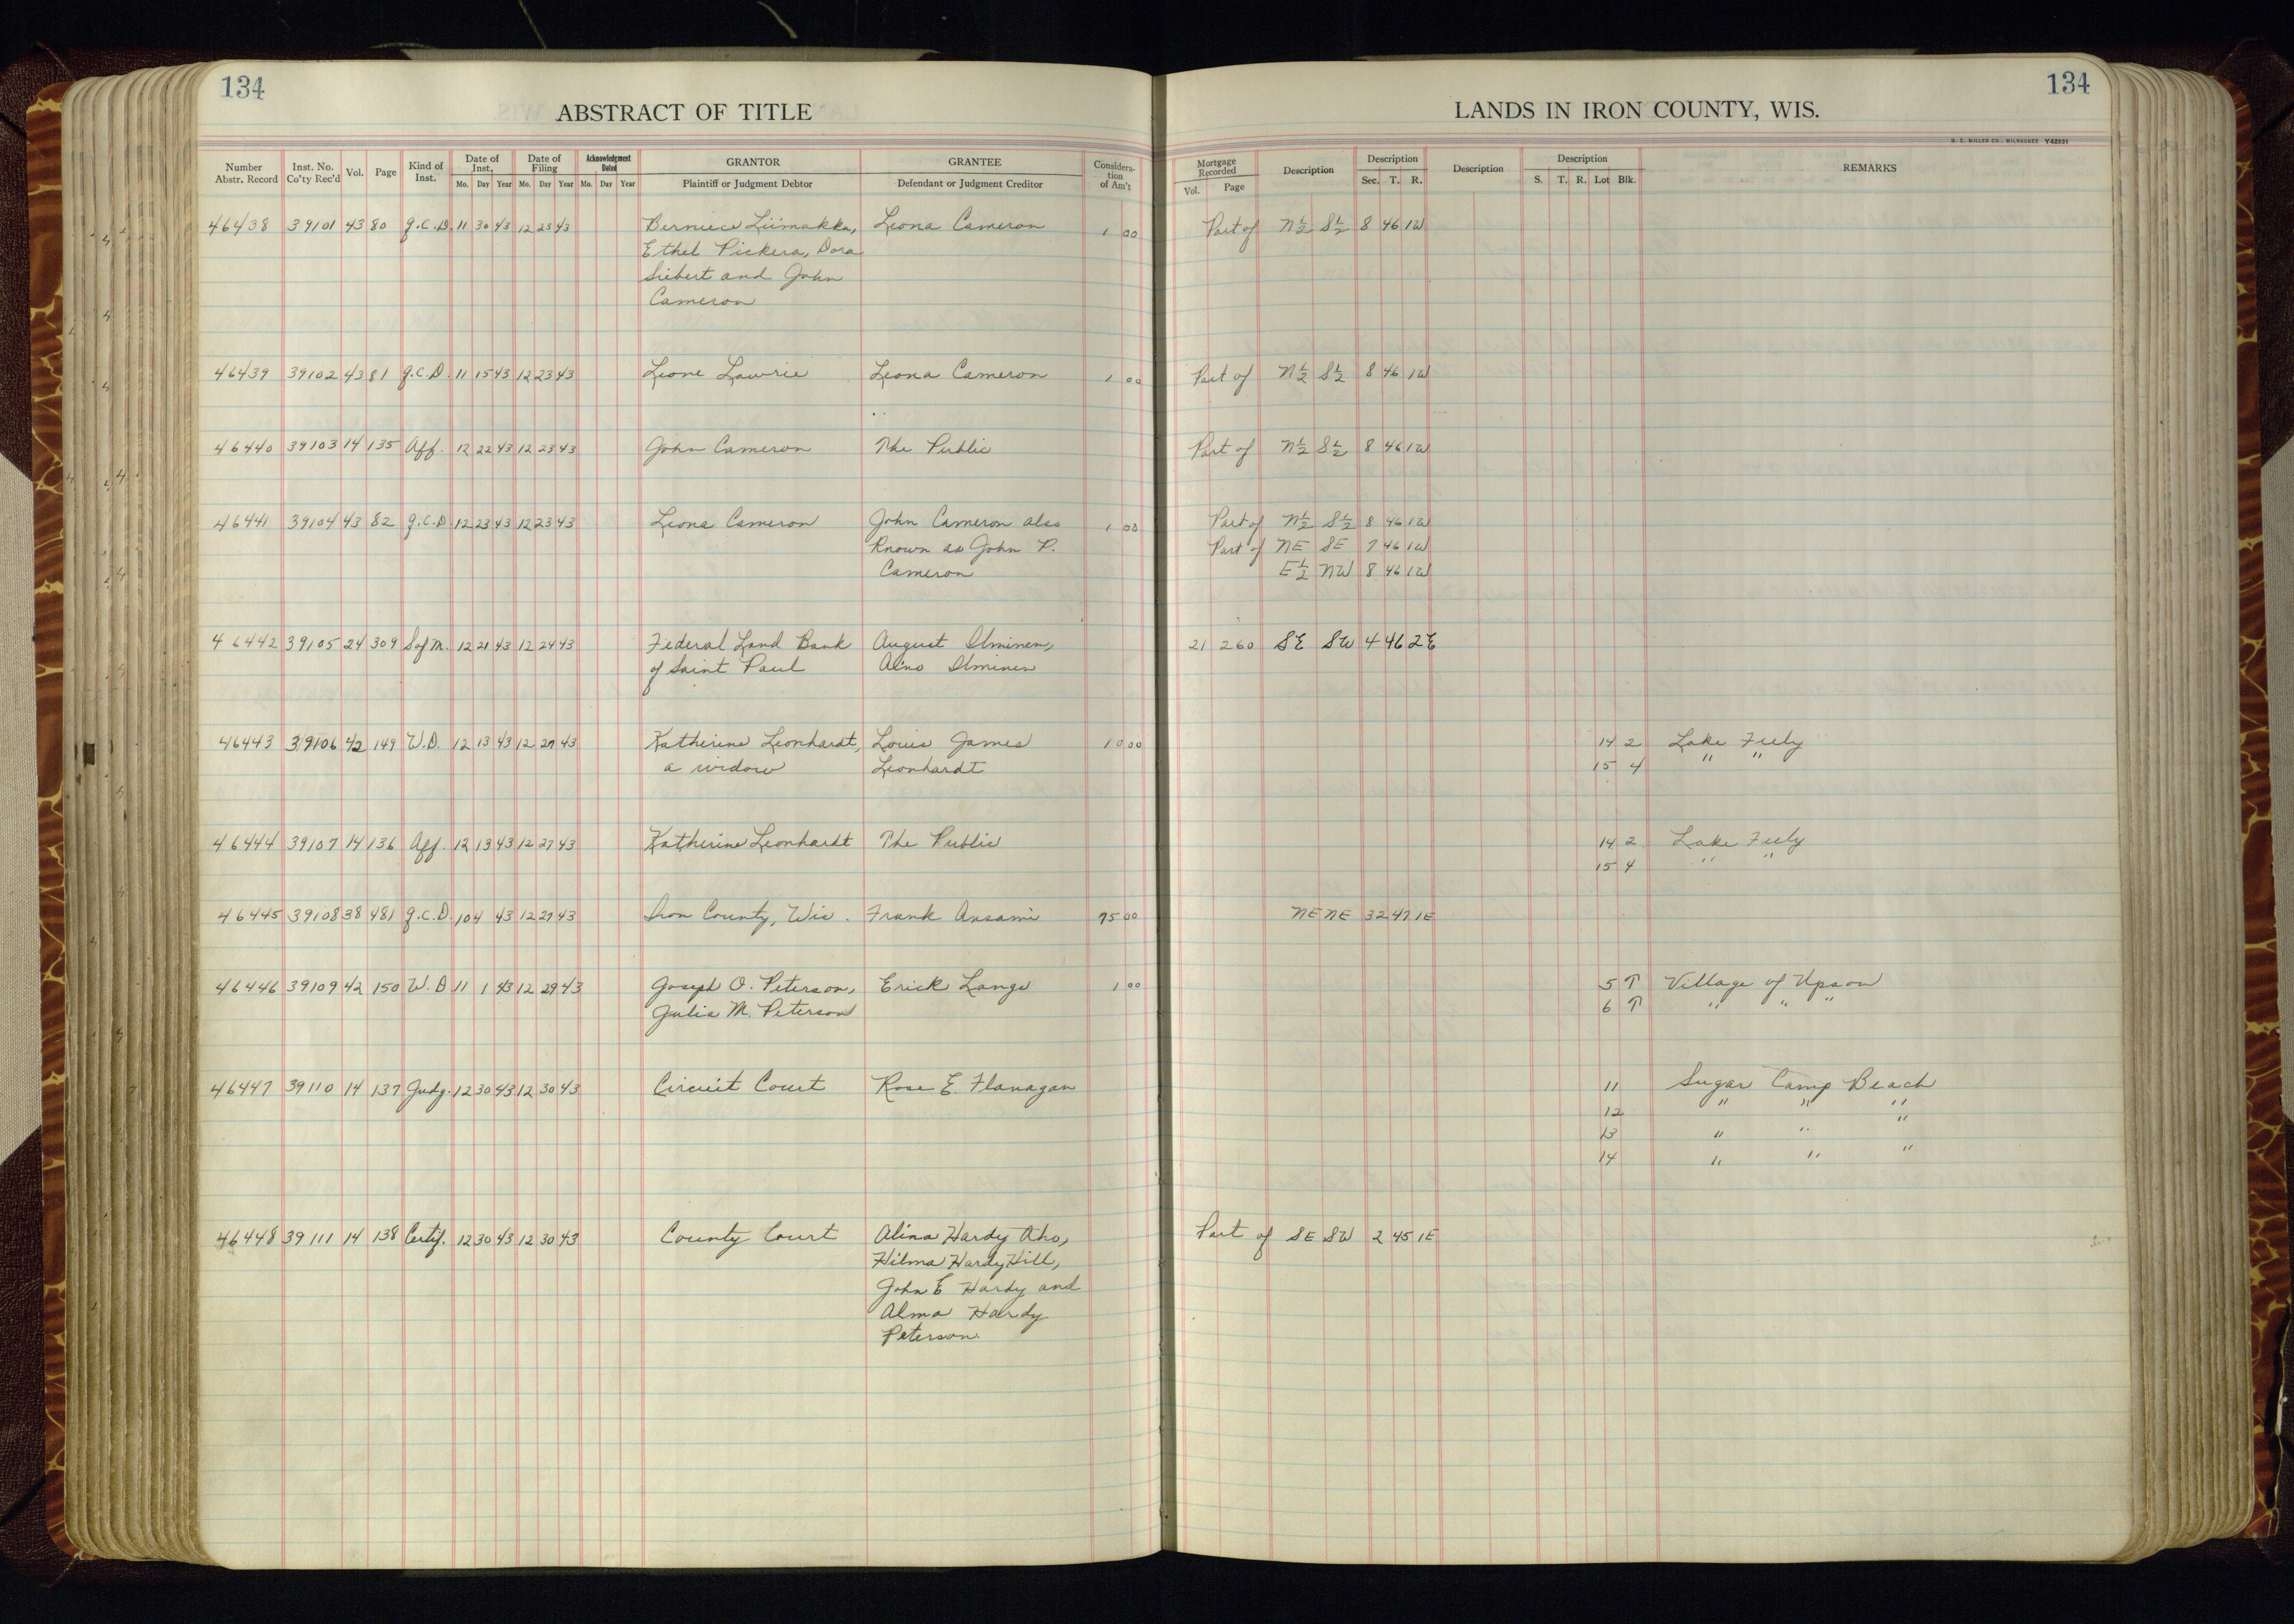 134
ABSTRACT OF TITLE
LANDS IN IRON COUNTY, WIS.
134
H. C. MILLER CO., MILWAUKEE Y42931
Number Abstr. Record | Inst. No. Co'ty Rec'd | Vol. | Page | Kind of Inst. | Date of Inst. Mo. Day Year | Date of Filing Mo. Day Year | Acknowledgment Dated Mo. Day Year | GRANTOR Plaintiff or Judgment Debtor | GRANTEE Defendant or Judgment Creditor | Consideration of Am't | Mortgage Recorded Vol. Page | Description | Description Sec. T. R. | Description | Description S. T. R. Lot Blk. | REMARKS
46438 39101 43 80 Q.C.D. 11 30 43 12 23 43 Berniece Liimakka, Leona Cameron 1 00 Part of N½ S½ 8 46 1W
Ethel Pickera, Dora
Siebert and John
Cameron
46439 39102 43 81 Q.C.D. 11 15 43 12 23 43 Leone Lawrie Leona Cameron 1 00 Part of N½ S½ 8 46 1W
46440 39103 14 135 Aff. 12 22 43 12 23 43 John Cameron The Public Part of N½ S½ 8 46 1W
46441 39104 43 82 Q.C.D. 12 23 43 12 23 43 Leona Cameron John Cameron also 1 00 Part of N½ S½ 8 46 1W
Known as John P. Part of NE SE 7 46 1W
Cameron E½ NW 8 46 1W
46442 39105 24 309 S of M. 12 21 43 12 24 43 Federal Land Bank August Ilminen, 21 260 SE SW 4 46 2E
of Saint Paul Aino Ilminen
46443 39106 42 149 W.D. 12 13 43 12 27 43 Katherine Leonhardt, Louis James 10 00 14 2 Lake Feely
a widow Leonhardt 15 4 " "
46444 39107 14 136 Aff. 12 13 43 12 27 43 Katherine Leonhardt The Public 14 2 Lake Feely
15 4 " "
46445 39108 38 481 Q.C.D. 10 4 43 12 27 43 Iron County, Wis. Frank Ansami 75 00 NE NE 32 47 1E
46446 39109 42 150 W.D 11 1 43 12 29 43 Joseph O. Peterson, Erick Lange 1 00 5 T Village of Upson
Julia M. Peterson 6 T " " "
46447 39110 14 137 Judg. 12 30 43 12 30 43 Circuit Court Rose E. Flanagan 11 Sugar Camp Beach
12 " " "
13 " " "
14 " " "
46448 39111 14 138 Certif. 12 30 43 12 30 43 County Court Alina Hardy Aho, Part of SE SW 2 45 1E
Hilma Hardy Hill,
John E Hardy and
Alma Hardy
Peterson.